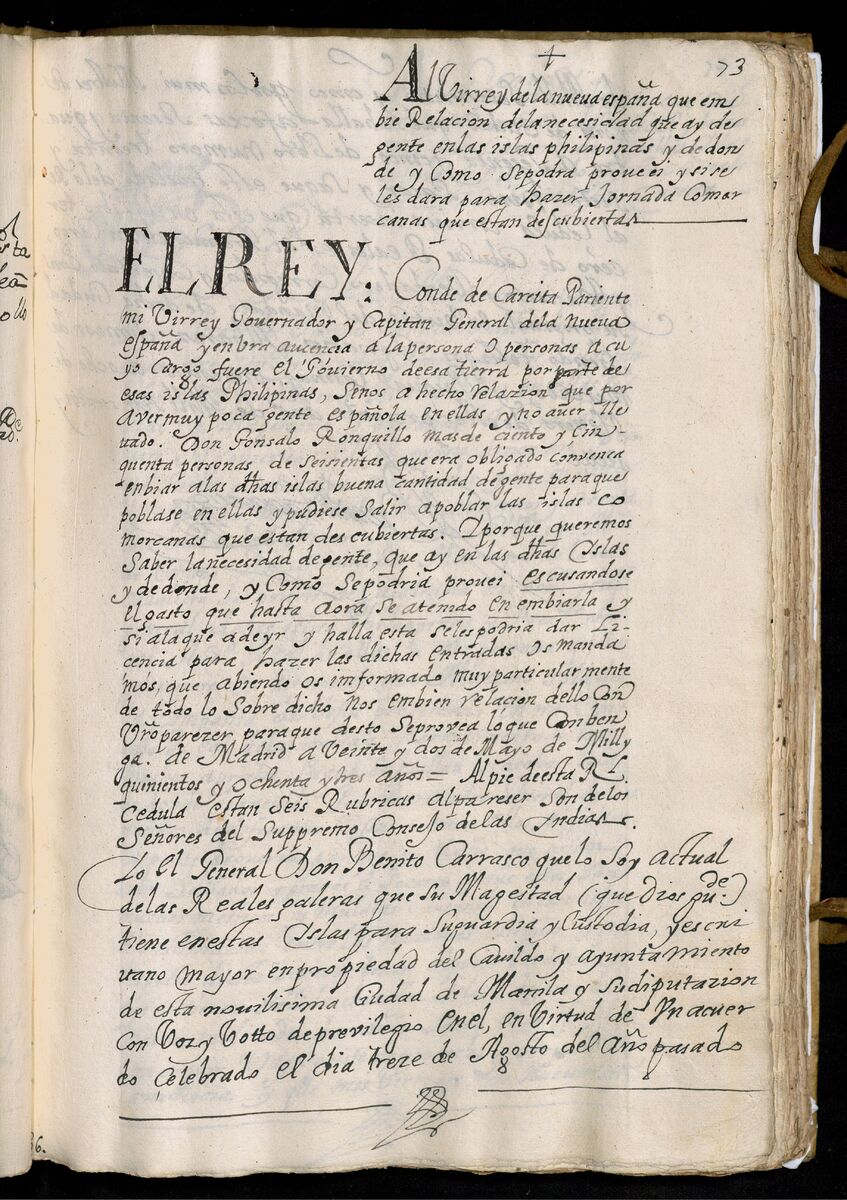 73
✝
Al Virrey de la nueva españa que em
bie Relacion de la necesidad que ay de
gente en las islas philipinas y de don
de y Como se podra proveei y si se
les dara para hazer Jornada Comar
canas que estan descubiertas
EL REY: Conde de Careita Pariente
mi Virrey Governador y Capitan General de la Nueva
España y en vra aucencia a la persona o personas a cu
yo Cargo fuere el Govierno de esa tierra por parte de
esas islas Philipinas, se nos a hecho relazion que por
aver muy poca gente española en ellas y no aver lle
vado. Don Gonsalo Ronquillo mas de ciento y Cin-
quenta personas de seisientas que era obligado convenca
enbiar a las dhas islas buena cantidad de gente para que
poblase en ellas y pudiese salir a poblar las islas co
morcanas que estan descubiertas. Y porque queremos
Saber la necesidad de gente, que ay en las dhas Islas
y de donde, y Como se podria provei escusandose
el gasto que hasta aora se a tenido en embiarla y
si a la que a de yr y halla esta se les podria dar Li-
cencia para hazer las dichas entradas os manda
mos, que abiendo os imformado muy particularmente
de todo lo sobre dicho nos embien relacion dello Con
Vro parezer, para que desto se provea lo que Conben
ga. de Madrid a Veinte y dos de Mayo de Mill y
quinientos y ochenta y tres años = Al pie de esta Rl.
Cedula estan seis Rubricas al pareser son de los
Señores del Suppremo Consejo de las Yndias.
Yo el General Don Benito Carrasco que lo soy actual
de las Reales galeras que su Magestad (que Dios gude:)
tiene en estas Islas para su guardia y Custodia, y escri
vano mayor en propiedad del Cavildo y ayuntamiento
de esta novilisima Ciudad de Manila y su diputazion
con Voz y Votto de previlegio en el, en Virtud de Vn acuer
do Celebrado el dia treze de Agosto del año pasado